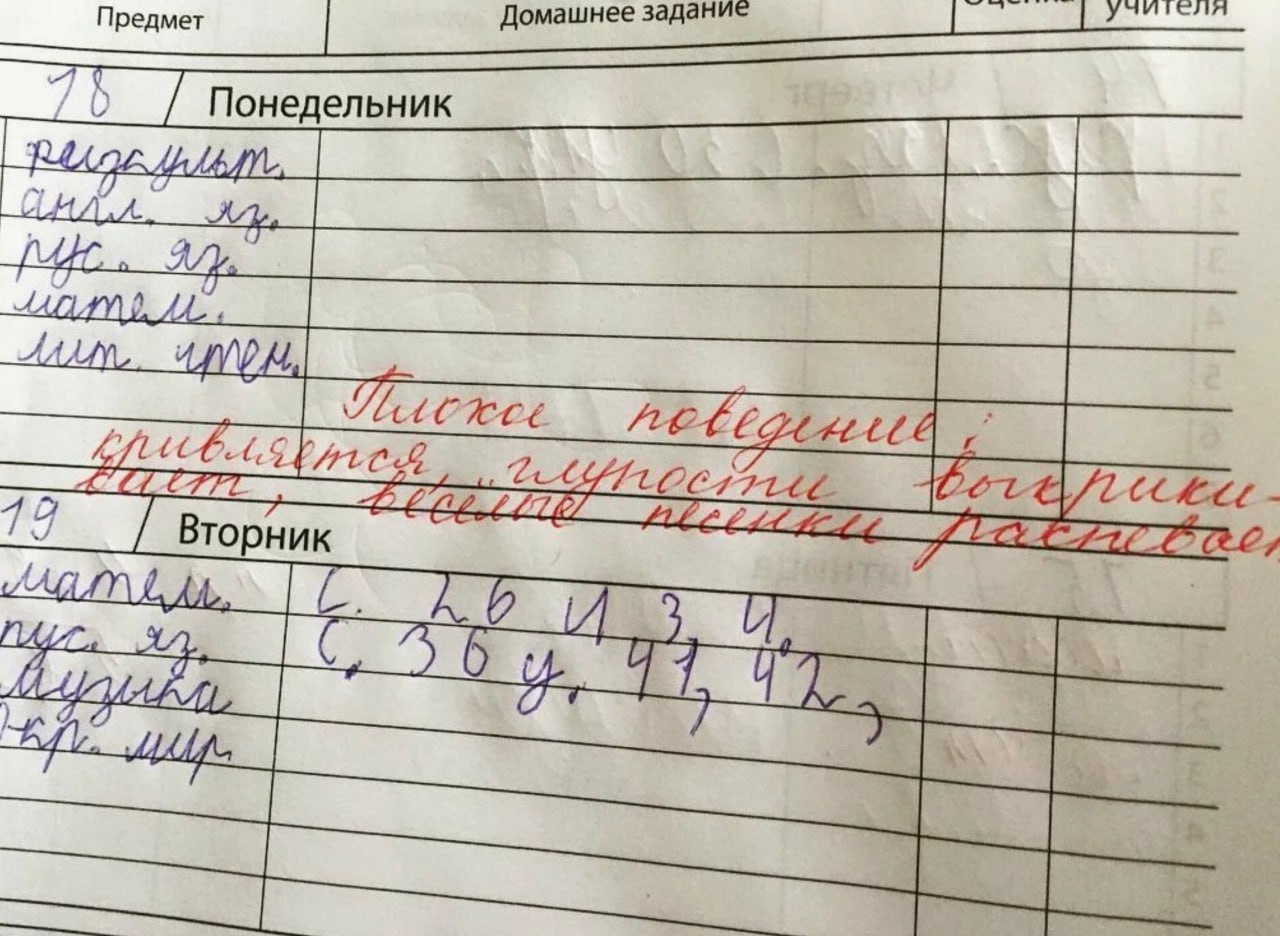 Предмет Домашнее задание Оценка учителя
18 Понедельник
физкульт.
англ. яз.
рус. яз.
матем.
лит. чтен.
Плохое поведение:
кривляется, глупости выкрики-
вает, весёлые песенки распевает
19 Вторник
матем. С. 26 И. 3, 4.
рус. яз. С. 36 у. 41, 42,
музыка
Окр. мир